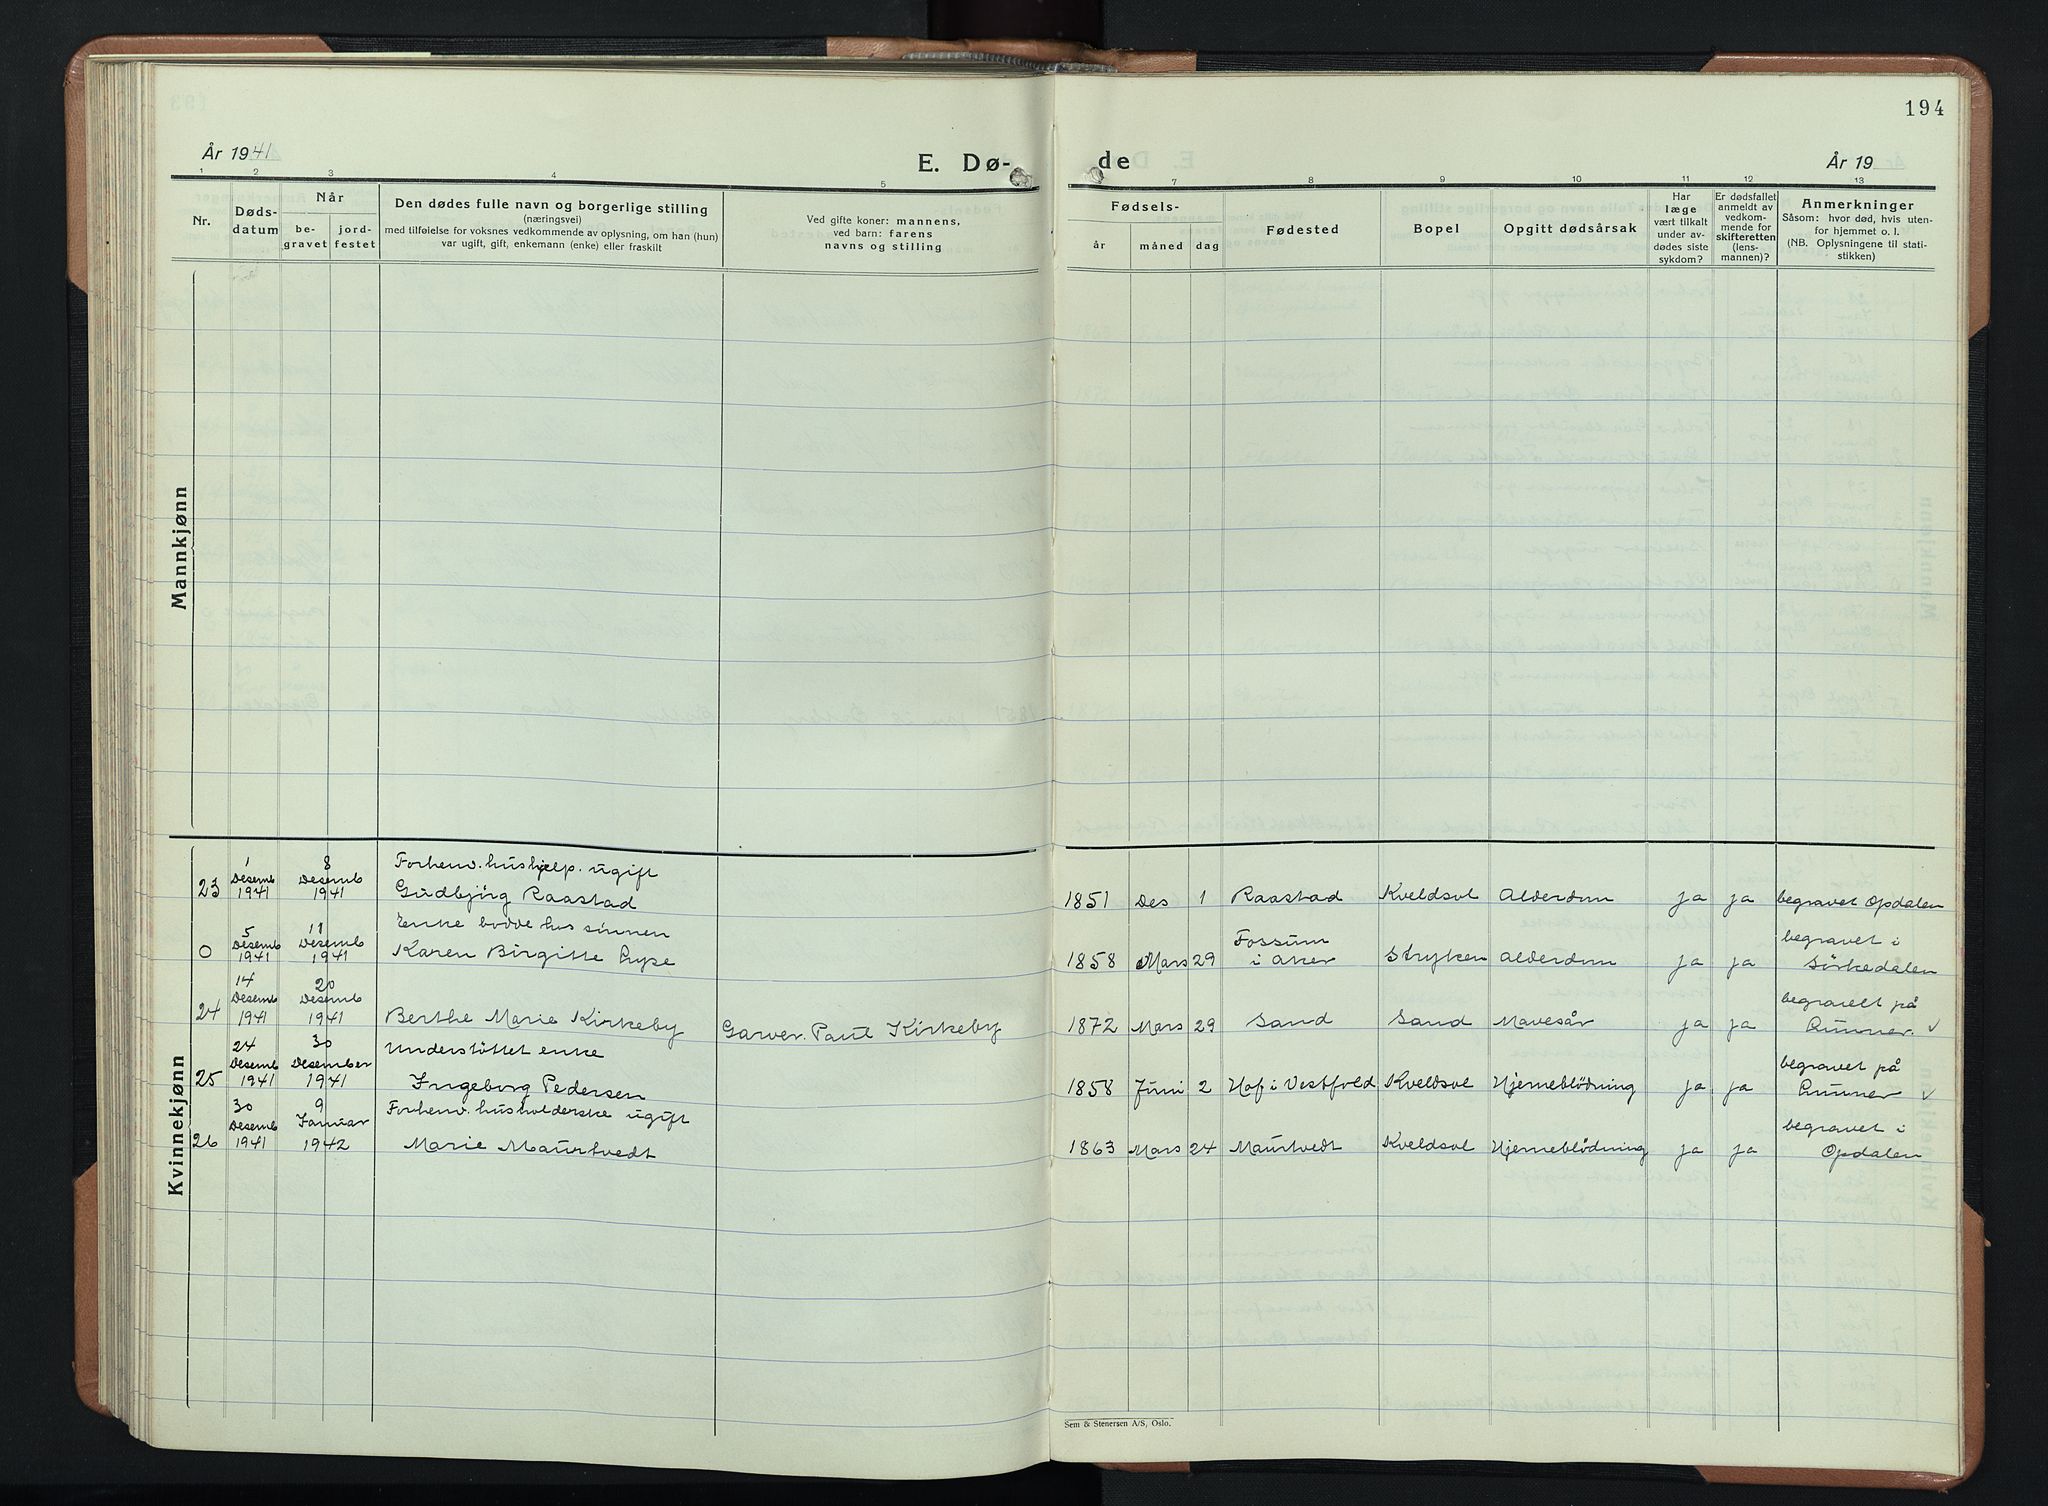 194
År 1941
E. Dø-
de
År 19
1 2 3 4 5
7 8 9 10 11 12 13
Nr.
Døds-
datum
Når
be-
gravet
jord-
festet
Den dødes fulle navn og borgerlige stilling
(næringsvei)
med tilføielse for voksnes vedkommende av oplysning, om han (hun)
var ugift, gift, enkemann (enke) eller fraskilt
Ved gifte koner: mannens,
ved barn: farens
navns og stilling
Fødsels-
år
måned
dag
Fødested
Bopel
Opgitt dødsårsak
Har
læge
vært tilkalt
under av-
dødes siste
sykdom?
Er dødsfallet
anmeldt av
vedkom-
mende for
skifteretten
(lens-
mannen)?
Anmerkninger
Såsom: hvor død, hvis uten-
for hjemmet o. l.
(NB. Oplysningene til stati-
stikken)
Mannkjønn
Kvinnekjønn
1 8 Forhenv. hushjelp. ugift
Desemb Desemb
23 1941 1941 Gudbjörg Raastad 1851 Des 1 Raastad Kveldsol Alderdom ja ja begravet Opdalen
5 11 Enke bodde hos sønnen
Desemb Desemb Fossum begravet i
0 1941 1941 Karen Birgitte 1858 Mars 29 i Aker Stryken Alderdom ja ja Sörkedalen
14 20
Desemb Desemb begravet på
24 1941 1941 Berthe Marie Kirkeby Garver. Paul Kirkeby 1872 Mars 29 Sand Sand Mavesår ja ja Lunner ✓
24 30 Understöttet enke
Desemb Desember begravet på
25 1941 1941 Ingeborg Pedersen 1858 Juni 2 Hof i Vestfold Kveldsol Hjerneblödning ja ja Lunner ✓
30 9 Forhenv. husholderske ugift
Desemb Januar begravet i
26 1941 1942 Marie Maurtvedt 1863 Mars 24 Maurtvedt Kveldsol Hjerneblödning ja ja Opdalen
Sem & Stenersen A/S, Oslo.